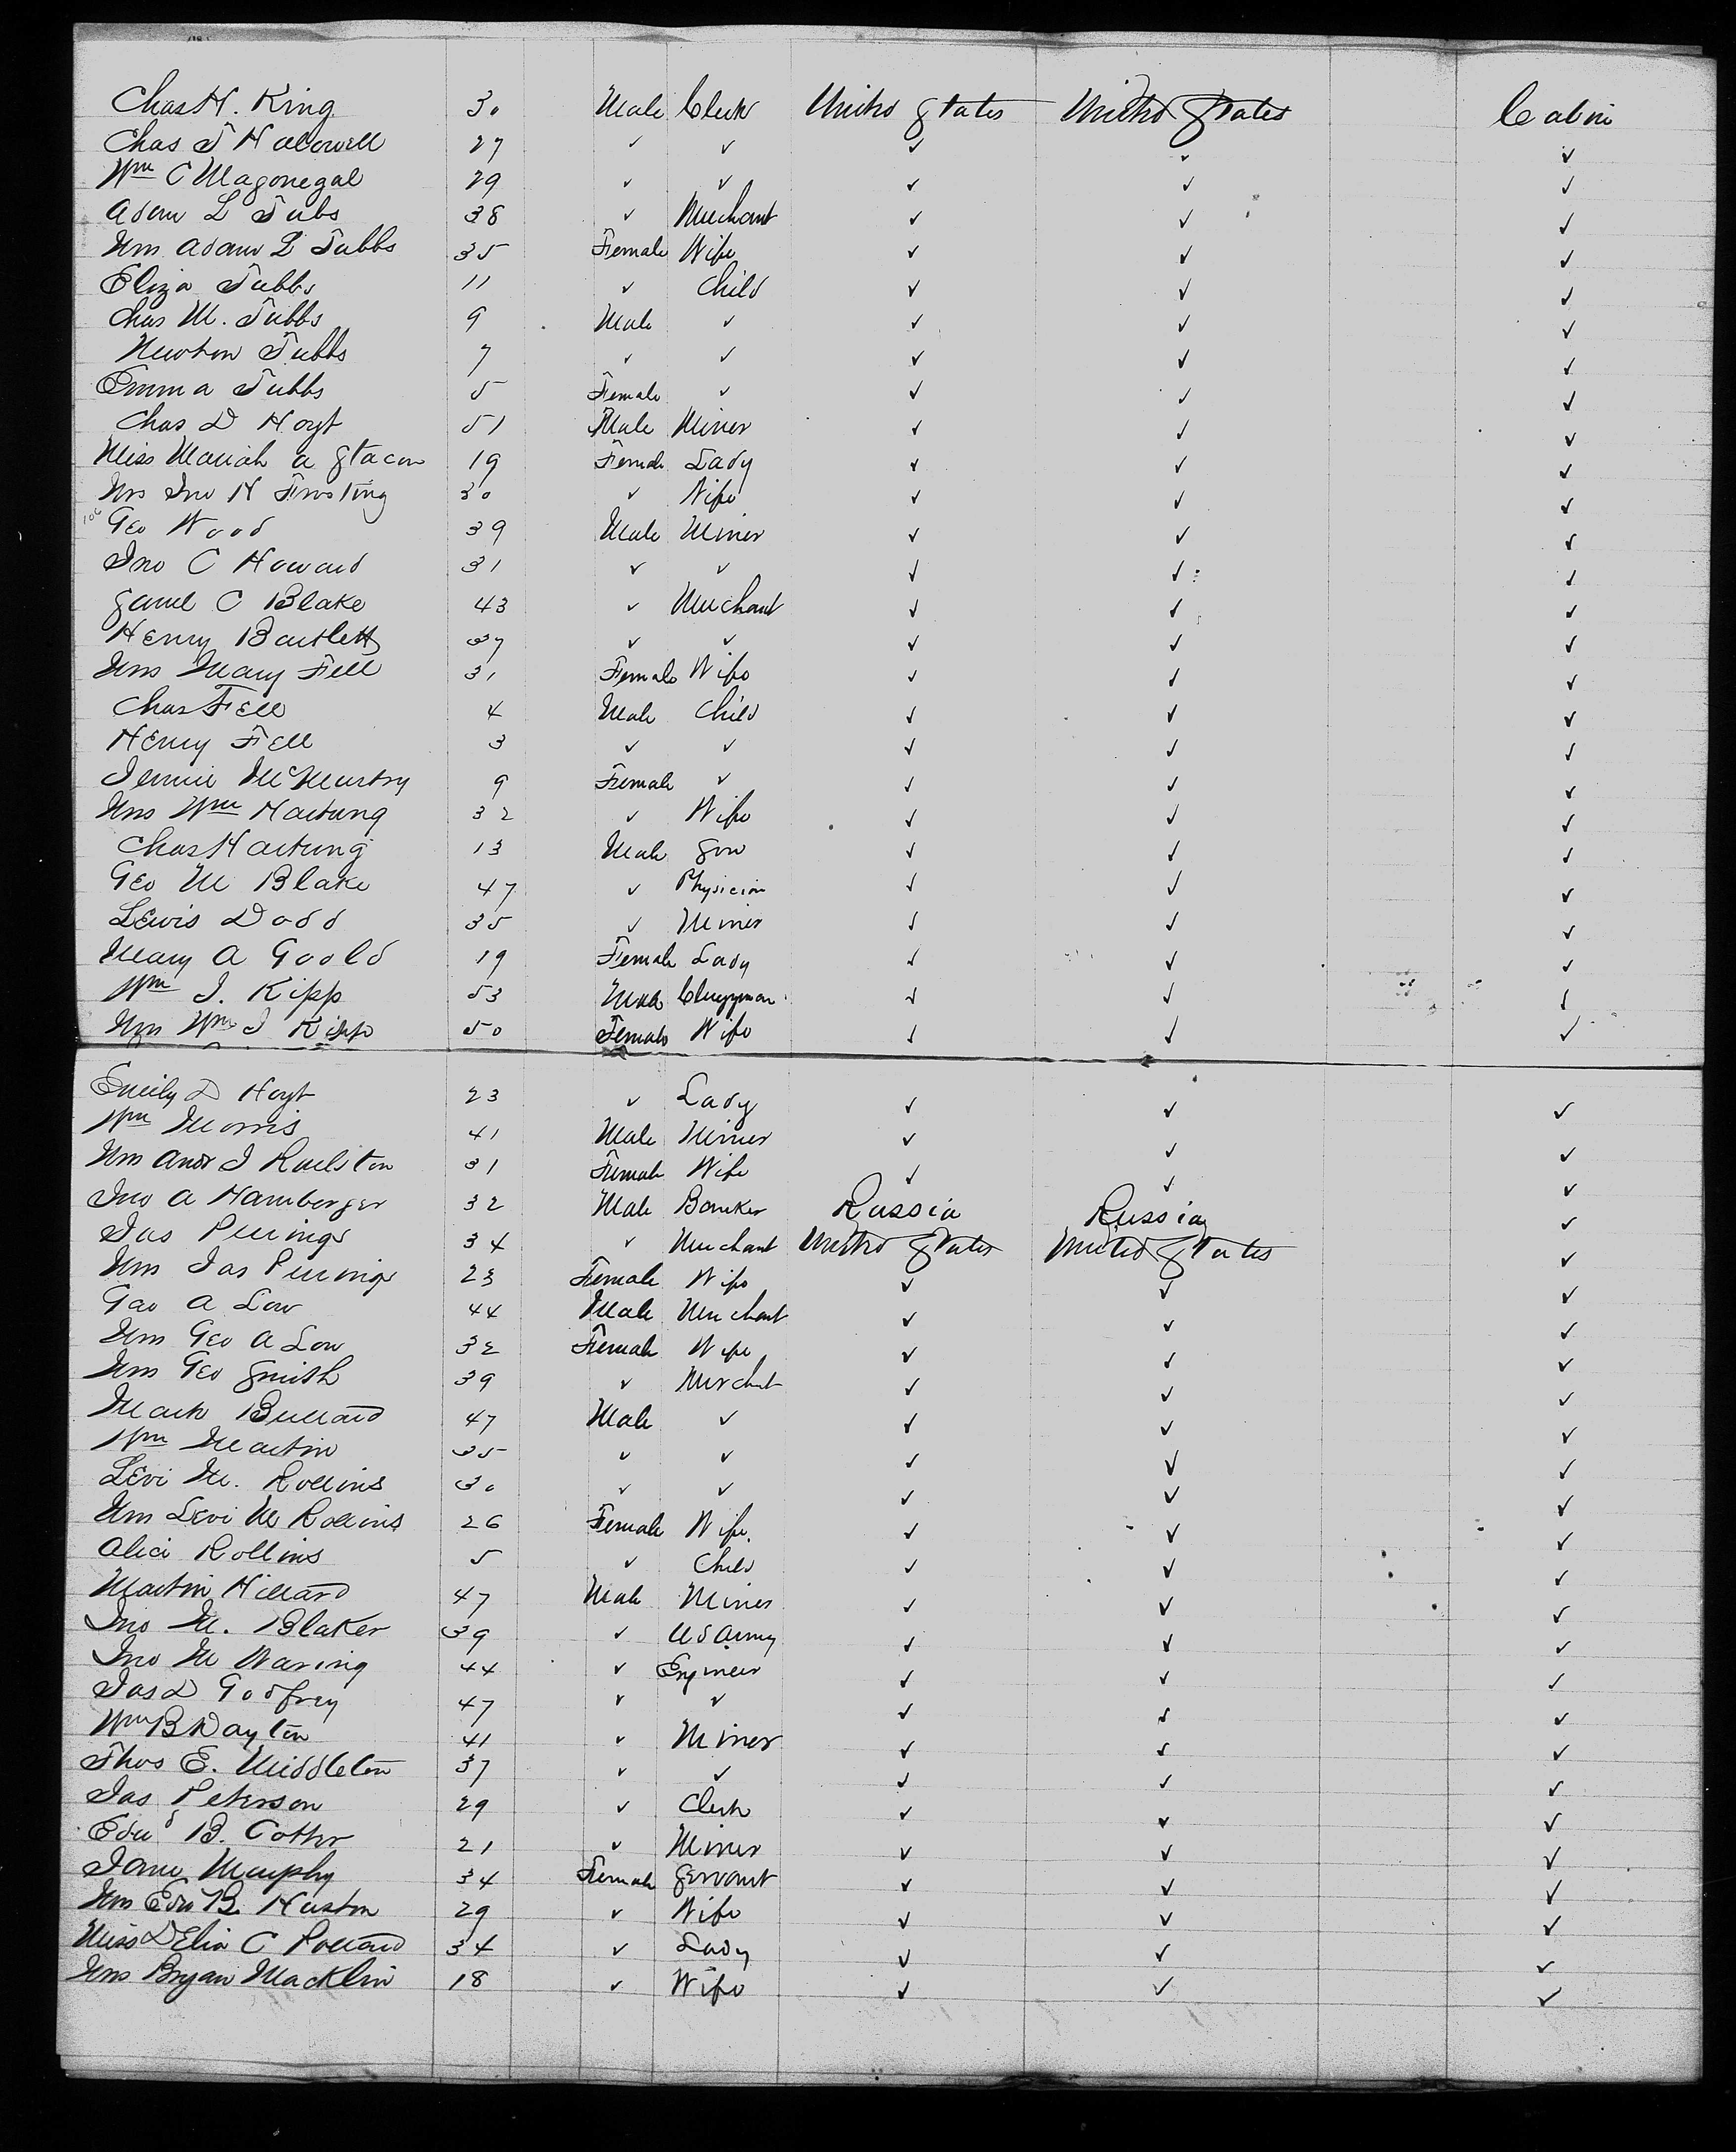 Chas H. King 30 Male Clerk United States United States Cabin
Chas T Halowell 27 ✓ ✓ ✓ ✓ ✓
Wm C Magonegal 29 ✓ ✓ ✓ ✓ ✓
Adam L Tubs 38 ✓ Merchant ✓ ✓ ✓
Mrs Adam L Tubbs 35 Female Wife ✓ ✓ ✓
Eliza Tubbs 11 ✓ Child ✓ ✓ ✓
Chas M. Tubbs 9 Male ✓ ✓ ✓ ✓
Newton Tubbs 7 ✓ ✓ ✓ ✓ ✓
Emma Tubbs 5 Female ✓ ✓ ✓ ✓
Chas D Hoyt 51 Male Miner ✓ ✓ ✓
Miss Mariah A 19 Female Lady ✓ ✓ ✓
Mrs Jno H 30 ✓ Wife ✓ ✓ ✓
Geo Wood 39 Male Miner ✓ ✓ ✓
Jno C Howard 31 ✓ ✓ ✓ ✓ ✓
Saml C Blake 43 ✓ Merchant ✓ ✓ ✓
Henry Bartlett 37 ✓ ✓ ✓ ✓ ✓
Mrs Mary Fell 31 Female Wife ✓ ✓ ✓
Chas Fell 4 Male Child ✓ ✓ ✓
Henry Fell 3 ✓ ✓ ✓ ✓ ✓
Jennie McMurtry 9 Female ✓ ✓ ✓ ✓
Mrs Wm Hartung 32 ✓ Wife ✓ ✓ ✓
Chas Hartung 13 Male Son ✓ ✓ ✓
Geo M Blake 47 ✓ Physician ✓ ✓ ✓
Lewis Dodd 35 ✓ Miner ✓ ✓ ✓
Mary A Goold 19 Female Lady ✓ ✓ ✓
Wm I. Kipp 53 Male Clergyman ✓ ✓ ✓
Mrs Wm I Kipp 50 Female Wife ✓ ✓ ✓
Emily D Hoyt 23 ✓ Lady ✓ ✓ ✓
Wm Morris 41 Male Miner ✓ ✓ ✓
Mrs Andr J Ralston 31 Female Wife ✓ ✓ ✓
Jno A Hamberger 32 Male Banker Russia Russia ✓
Jas 34 ✓ Merchant United States United States ✓
Mrs Jas 23 Female Wife ✓ ✓ ✓
Geo A Low 44 Male Merchant ✓ ✓ ✓
Mrs Geo A Low 32 Female Wife ✓ ✓ ✓
Mrs Geo Smith 39 ✓ Merchant ✓ ✓ ✓
Mark 47 Male ✓ ✓ ✓ ✓
Wm Martin 35 ✓ ✓ ✓ ✓ ✓
Levi M. Rollins 30 ✓ ✓ ✓ ✓ ✓
Mrs Levi M Rollins 26 Female Wife. ✓ ✓ ✓
Alice Rollins 5 ✓ Child ✓ ✓ ✓
Martin Hillard 47 Male Miner ✓ ✓ ✓
Jno M. Blaker 39 ✓ U S Army ✓ ✓ ✓
Jno M Waring 44 ✓ Engineer ✓ ✓ ✓
Jas D Godfrey 47 ✓ ✓ ✓ ✓ ✓
Wm B Dayton 41 ✓ Miner ✓ ✓ ✓
Thos E. Middleton 37 ✓ ✓ ✓ ✓ ✓
Jas Peterson 29 ✓ Clerk ✓ ✓ ✓
Edwd B. Cotter 21 ✓ Miner ✓ ✓ ✓
Jane Murphy 34 Female Servant ✓ ✓ ✓
Mrs Edw B. Huston 29 ✓ Wife ✓ ✓ ✓
Miss Delia C Pollard 34 ✓ Lady ✓ ✓ ✓
Mrs Bryan Macklin 18 ✓ Wife ✓ ✓ ✓